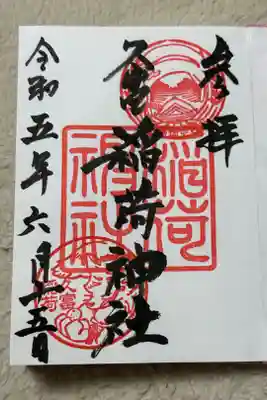 参拝
久富稲荷神社
稲荷
神社
令和五年六月十五日